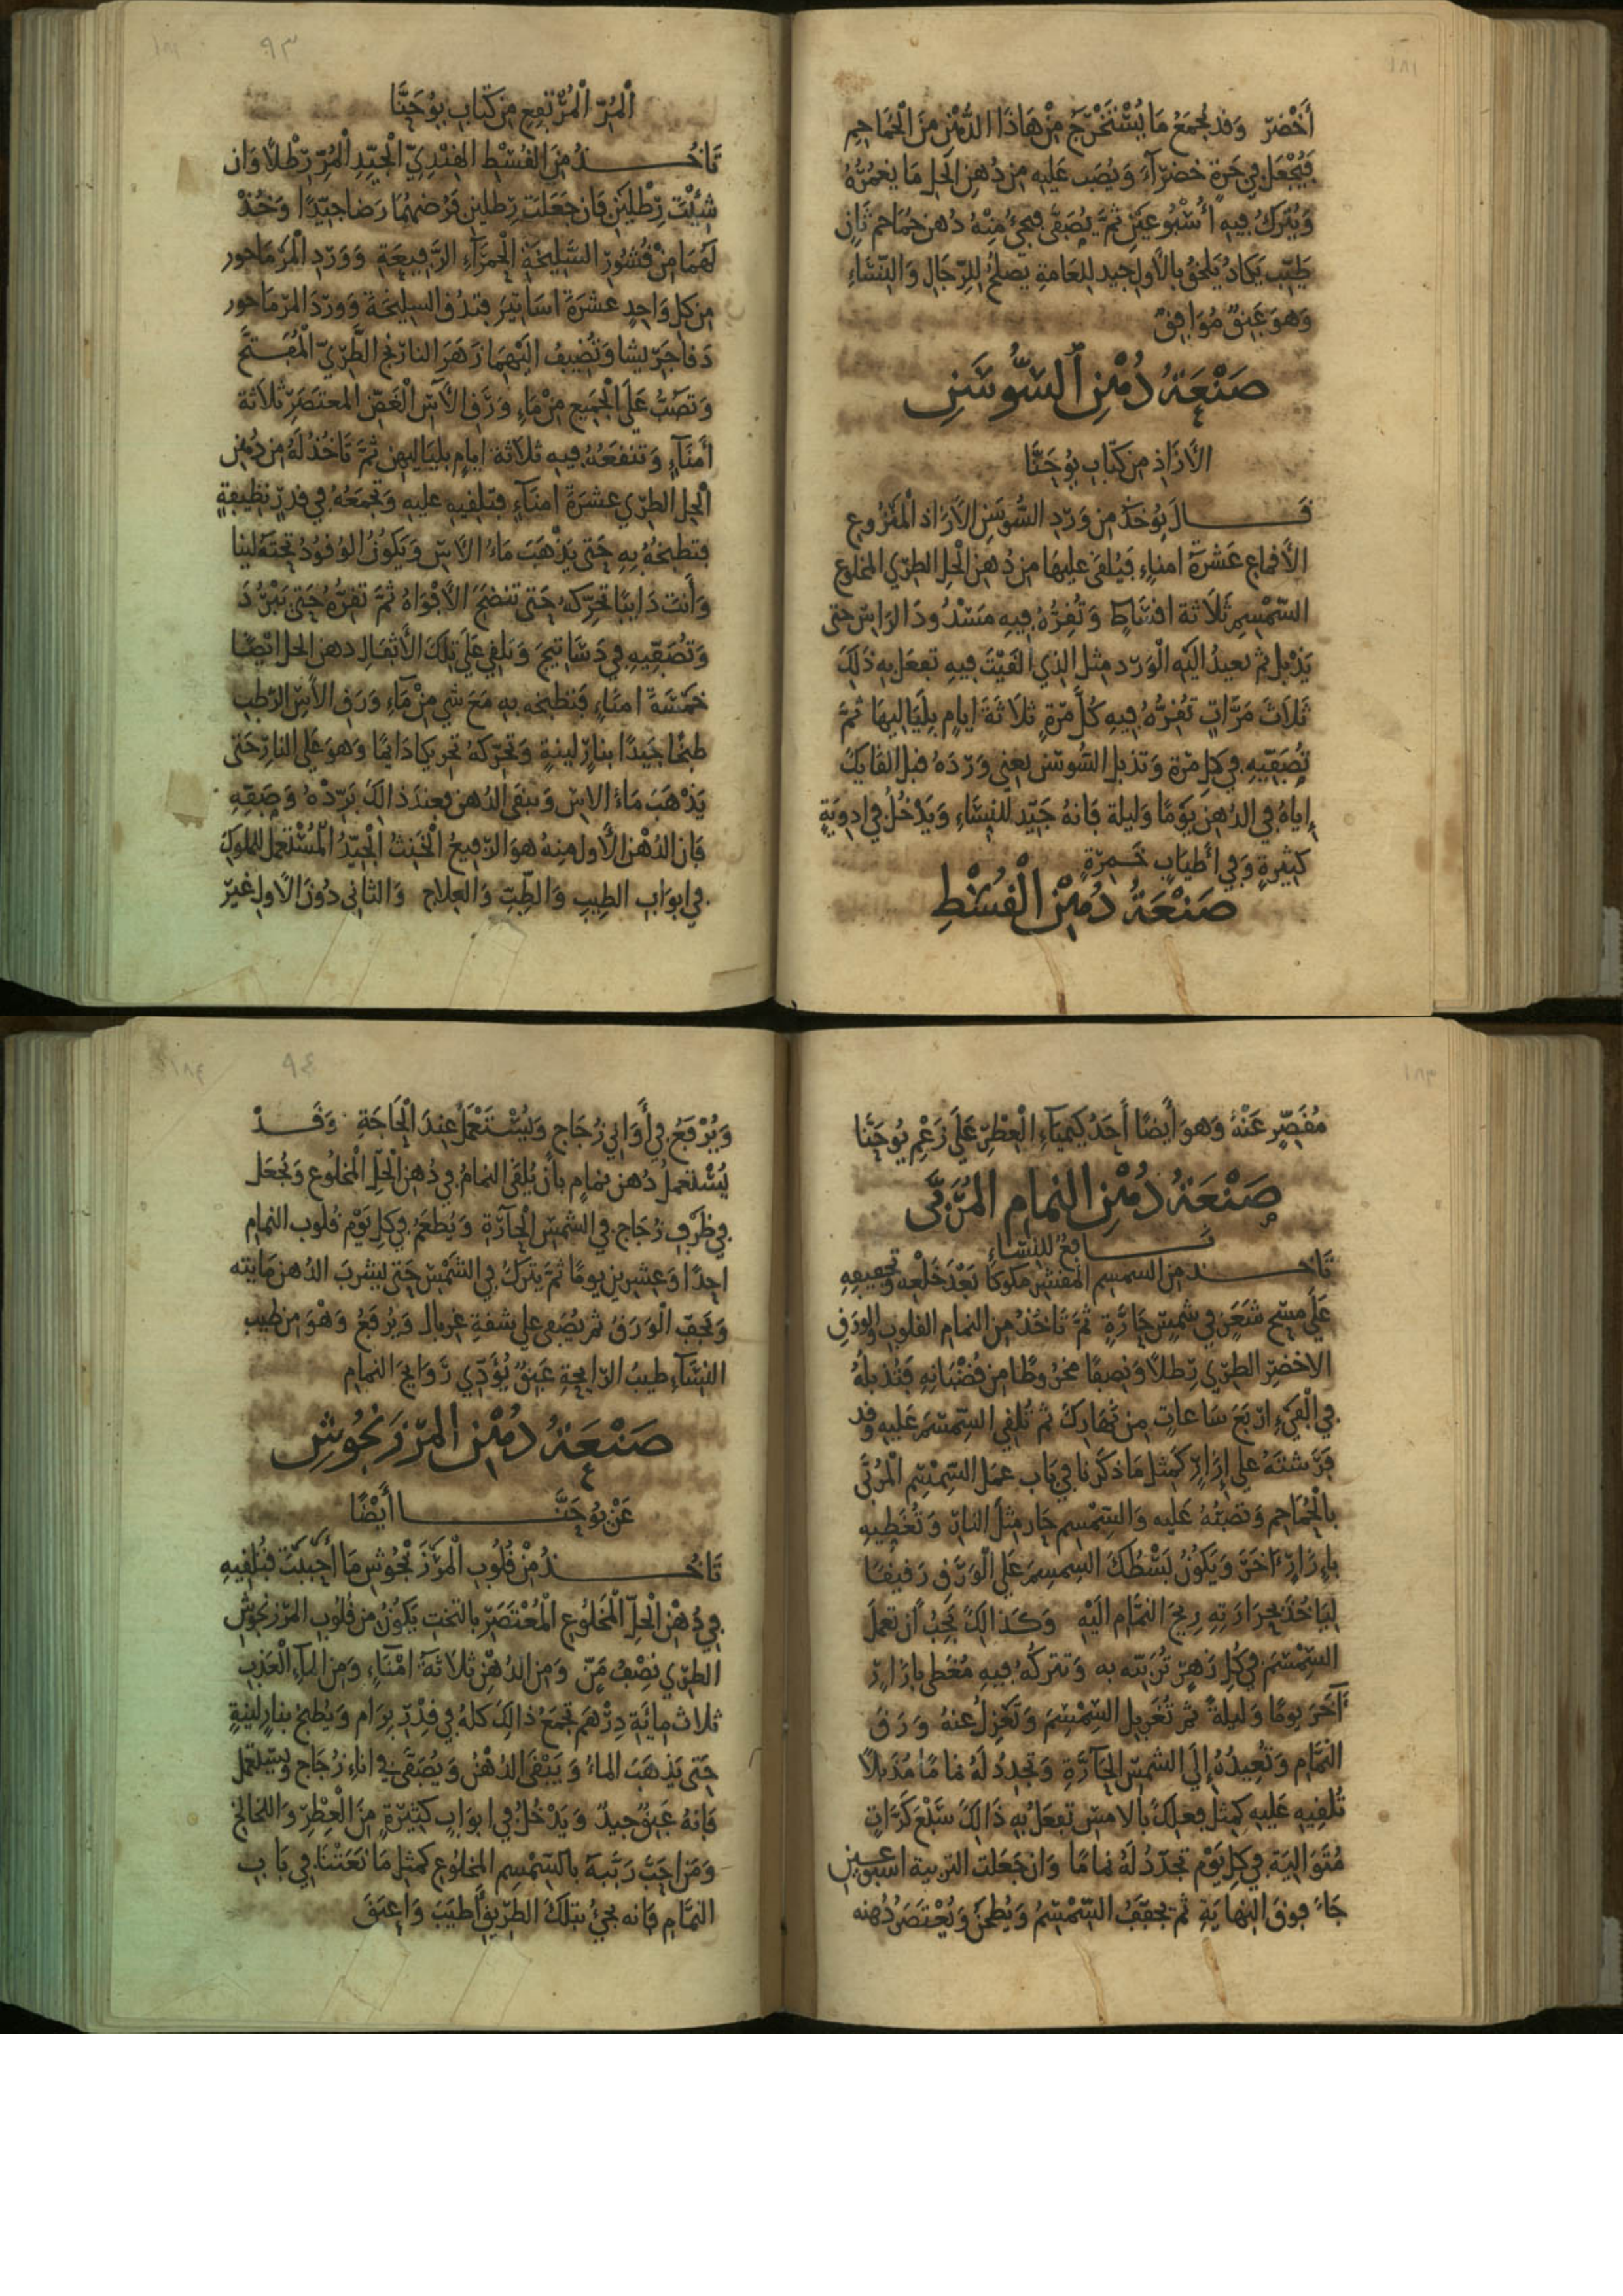 أَخْضَرَ وَقَد يُجمَعُ مَا يُسْتَخْرَجُ مِنْ هَاذَا الدُّهْنِ مِنَ الْحَمَاحِمِ
فَيُجْعَل فِي جَرةٍ خَضرَآءَ وَيُصَب عَلَيهِ من دُهنِ الحَل مَا يَغمُرُهُ
وَيُترَكُ فِيهِ أُسْبُوعَيْن ثُمَّ يُصَفّى فيجيُ مِنْهُ دُهن حَمَاحم ثَانٍ
طَيّب يَكَادُ يَلحَقُ بالأَولِ جيد للعَامةِ يَصلحُ لِلرِّجَالِ وَالنّسَاءِ
وَهوَ عَبِقٌ مُوَافِقٌ
صَنْعَةُ دُهْنِ السُّوسَنِ
الأَزَاذِ مِن كتَابِ يُوحَنَّا
قَالَ يُوخَذُ من وَرْدِ السُّوسَنِ الأَزَاذ الْمَنزُوعِ
الأَقماعِ عَشرَة امنَاءٍ فَيُلقَى عليهَا من دُهنِ الْحَلِ الطرِي المخلوع
السّمْسِم ثَلَاثَة اقسَاطٍ وَتُقِرُّهُ فِيهِ مَسْدُودَ الرَاسِ حتى
يَذبل ثم تعيدُ اليَهِ الْوَرْد مثل الذِي القَيْتَ فيهِ تفعَل بهِ ذَلِكَ
ثَلَاثَ مَرَّاتٍ تُقِرُّهُ فِيهِ كُلَّ مَرّةٍ ثَلَاثَةَ ايامٍ بِلَيَالِيهَا ثمَّ
تُصَفّيهِ في كلِ مَرّة وَتذبل السُّوسَن يعني وَرْدَهُ قبل القَايكَ
إِياهُ فِي الدُهنِ يَومًا وَليلة فَانهُ جَيّد للنِسَاءِ وَيَدْخُلُ فِي ادوِيَةٍ
كثِيرةٍ وَفي أَطيَابٍ خَمِرَةٍ
صَنْعَةُ دُهْنِ الْقُسْطِ
الْمُرّ الْمُرْتفِعِ مِن كتَابِ يُوحَنَّا
تَاخُذُ مِنَ القُسْطِ الهِنْدِيّ الْجَيّدِ الْمُرّ رِطْلًا وَان
شِئْتَ رِطْلَيْن فَان جَعَلتَ رِطلين فَرُضهُمَا رَضا جيّدًا وَخُذْ
لَهُمَا مِنْ قُشُورِ السَّلِيخَةِ الْحَمْرَآءِ الرَّفِيعَةِ وَوَرْدِ الْمَرْمَاحور
مِن كلِ وَاحِدٍ عَشرَةَ اسَاتيْرَ فتدُق السليخَة وَوَرْدَ المرمَاحور
دَقا جَرِيشا وَتُضِيفُ اليْهِمَا زَهرَ النارنج الطَّرِيّ الْمُفَتَّح
وَتَصُبُّ عَلَى الْجَمِيعِ مِنْ مَاءِ وَرَقِ الآسِ الْغَضّ المعتَصَرِ ثَلَاثَة
أَمنَآءٍ وَتنقعُهُ فِيهِ ثَلَاثَة ايامٍ بليَالِيهِن ثمَّ تَاخُذُ لَهُ مِن دُهْن
الْحَل الطرِي عشرَةَ امنَآءٍ فتلقِيهِ عليهِ وَتجمَعُهُ في قدرٍ نظِيفَةٍ
فتطبخُهُ بهِ حَتى يَذْهَبَ مَاءُ الآسِ وَيَكُونُ الوُقُودُ تحتَهُ لينا
وَأَنتَ دَايبًا تحَرّكهُ حَتى تنضجَ الأَفْوَاهُ ثمَّ تقرُّهُ حَتى يَبْرُدَ
وَتُصَفّيهِ في دَسَاتيجَ وَتلقي عَلَى تِلكَ الأَثقَالِ دهنِ الحل ايضًا
خمْسَةَ امنَاءٍ فتطبخه بهِ مَعَ شي مِنْ مَآءِ وَرَقِ الآسِ الرَطبِ
طبخًا جَيّدًا بنارٍ لينةٍ وَتُحَرّكهُ تحريكا دَايمًا وَهوَ عَلَى النارِ حَتى
يَذْهَبَ مَاءُ الاسِ وَيبقى الدُهن فعِندَ ذَالكَ بَرّدْهُ وَصَفّهِ
فَان الدُهْنَ الأَول مِنهُ هوَ الرّفِيعُ الْخَنِثُ الْجَيّدُ الْمُسْتَعمَل للمُلوكِ
في ابوَابِ الطِيبِ وَالطِّبِّ وَالعِلَاجِ وَالثانى دُونَ الأَول غَيْرَ
مُقَصِّرٍ عَنْهُ وَهوَ أَيضًا أَحَدُ كيميَآءِ الْعِطْرِ عَلَى زَعْمِ يُوحَنَّا
صَنْعَةُ دُهْنِ النمامِ المُرَبَّى
نَافِعٌ لِلنِسَاءِ
تَاخُذُ مِن السمسمِ المُقشرِ مَكوكا بَعْدَ خَلْعِهِ وَتجفيفِهِ
عَلَى مِسْح شَعَرٍ في شمسٍ حَارَّةٍ ثمَّ تَاخُذُ مِن النمامِ القلوبِ وَالوَرَقِ
الاخضَرِ الطرِي رِطلًا وَنِصفًا مخرُوطًا مِن قُضْبَانِهِ فتُذبِلُهُ
في الْفَيْءِ ارْبَعَ سَاعاتٍ مِن نَهَارِكَ ثم تُلقي السّمْسَمَ عَليهِ وَقد
فَرَشتَهُ عَلى إِزَارٍ كمثلِ مَا ذكَرنَا في بَابِ عَمَل السّمْسِم الْمُرَبّى
بالْحَمَاحِمِ وَتصُبُّهُ عَلَيهِ وَالسّمْسِم حَار مِثلَ النارِ وَتُغَطّيهِ
بإِزَارٍ آخَرَ وَيَكُونُ بَسْطُكَ السمسِمَ عَلى الْوَرَقِ رَقِيقًا
لِيَاخُذَ بحَرَارَتِهِ رِيحَ النمَّامِ الَيْهِ وَكَذَالِكَ يَجِبُ أَن تعمَلَ
السّمْسَمَ في كلِ زَهرٍ تُرَبّيه به وَتتركُهُ فِيهِ مُغَطى بازَارٍ
آخَرَ يومًا وَليلةً ثم تُغَربِل السّمْسِمَ وَتَعْزِلُ عنهُ وَرَقَ
النمَّامِ وَتُعيدُهُ إِلَى الشمسِ الحَآرَّةِ وَتجَدِدُ لَهُ نمامًا مُذَبلًا
تُلقِيهِ عَليهِ كمِثل فِعلكَ بالامسِ تفعَلُ بهِ ذَالكَ سَبْعَ كَرَّاتٍ
مُتَوَاليَة في كلِ يَوْمٍ تجَدّدُ لَهُ نمامًا وَان جَعَلتَ التربية اسبوعين
جَاءَ فوقَ النِهايَةِ ثم يجفّفُ السّمْسِمُ وَيُطحَنُ وَيُعْتَصَرُ دُهنه
وَيُرْفَعُ في أَوَانِي زُجَاجٍ وَيُسْتَعْمَلُ عِندَ الْحَاجَةِ وَقَدْ
يُسْتَعمَلُ دُهن نمامٍ بأَن يُلقَى النمامُ في دُهنِ الْحَلّ الْمخلُوعِ وَيُجعَل
في ظَرْفِ زُجَاجٍ في الشمْسِ الْحَآرّةِ وَيُطعَمُ في كلِ يَوْمٍ قلوب النمامِ
احدًا وَعِشرِين يومًا ثمَّ يُترَكُ في الشَمْسِ حَتى يَشرَبَ الدُهنُ مَايته
وَيَجفّ الْوَرَقُ ثم يُصَفى على شقةِ غِربال وَيُرفَعُ وَهْوَ مِن طِيبِ
النِسَآءِ طيبُ الرَايحةِ عَبِقٌ يُؤَدّي رَوَايحَ النمامِ
صَنْعَةُ دُهْنِ المَرْزَنجُوشِ
عَنْ يُوحَنَّا أَيْضًا
تَاخُذُ مِنْ قُلُوبِ الْمَرْزَنْجُوشِ مَا أَحْبَبْتَ فتُلقِيهِ
فِي دُهْنِ الْحَلّ الْمَخلُوعِ الْمُعْتَصَرِ بالتختِ يَكُونُ مِن قُلُوبِ المرْزَنجوشِ
الطرِي نِصْفُ مَنّ وَمِن الدُهْنِ ثَلَاثَةُ امْنَآءٍ وَمِن المآءِ الْعَذبِ
ثلَاث مايَةِ دِرْهَمٍ تجمَعُ ذَالكَ كلهُ في قِدْرِ بِرَام وَيُطبخُ بنارٍ لينةٍ
حَتى يَذهَبَ الماءُ وَيَبْقَى الدُهْنُ وَيُصَفّى في اناءِ زُجَاجٍ وَيستعمل
فَانهُ عَبِقٌ جيدٌ وَيَدْخُلُ في ابوَابٍ كثِيْرَةٍ مِنَ الْعِطْرِ وَاللخالخ
وَمَن احَبَّ رَبَّبَهُ بالسّمْسِمِ المخلوعِ كمثل مَا نَعَتْنَا في بَابِ
النمَّامِ فَانه يجيُ بتلكَ الطَرِيقِ أَطيَبَ وَاعبَقَ